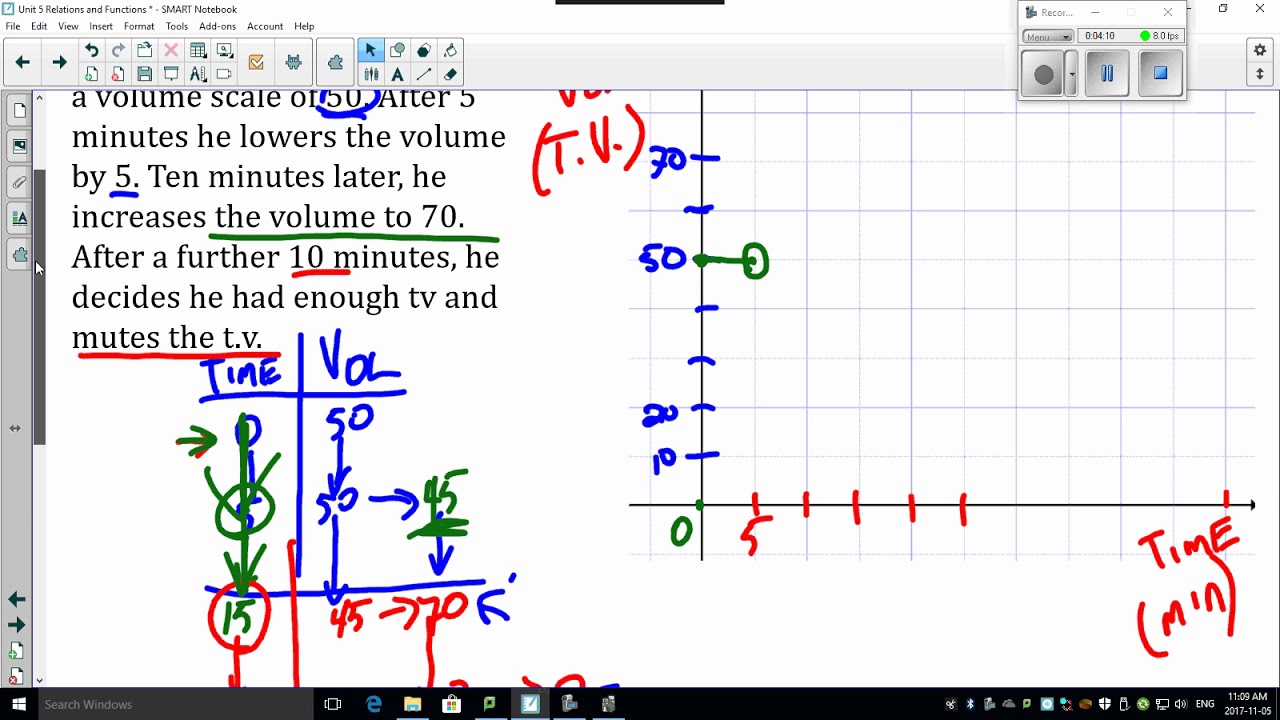 Unit 5 Relations and Functions * - SMART Notebook
File Edit View Insert Format Tools Add-ons Account Help
Recor...
Menu 0:04:10 8.0 fps
a volume scale of 50. After 5
minutes he lowers the volume
by 5. Ten minutes later, he
increases the volume to 70.
After a further 10 minutes, he
decides he had enough tv and
mutes the t.v.
TIME VOL
0 50
5 50 → 45
15 45 → 70
(T.V.)
70
50
20
10
0 5
TIME
(min)
Search Windows
ENG
11:09 AM
2017-11-05